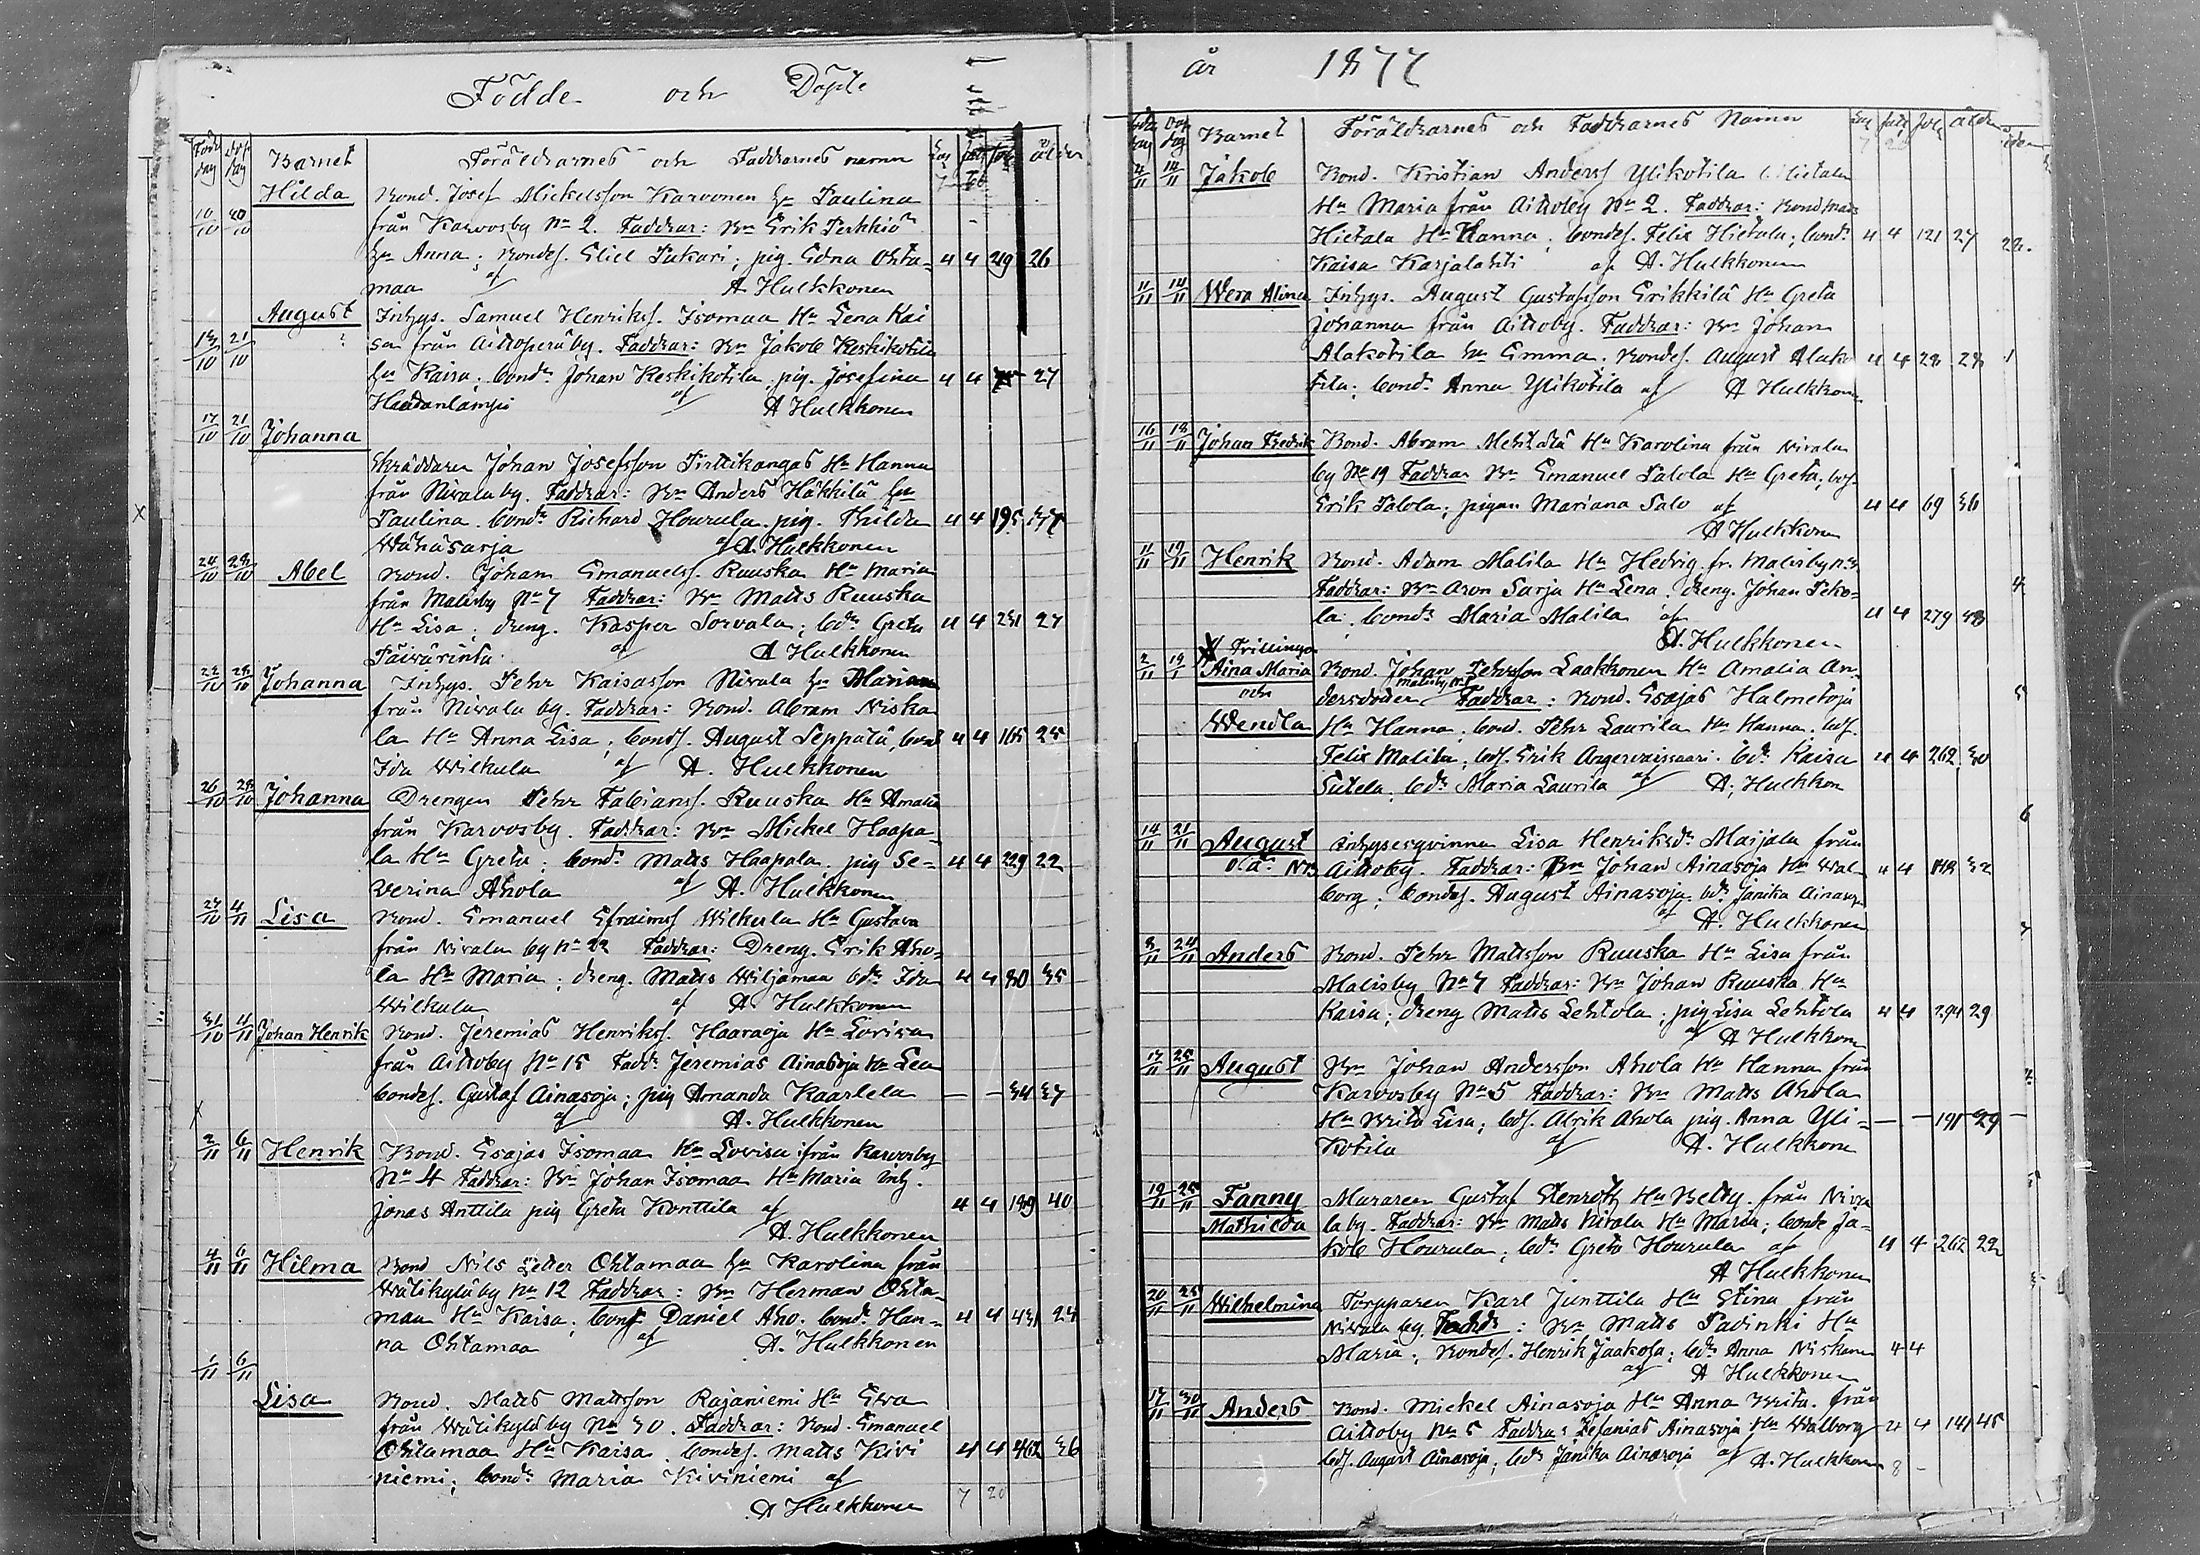 Födde och Döpte
Barnet Föräldrarnes och Faddrarnes namn
Hilda Bond. Josef Mickelsson Karvonen hu Paulina
10/10 20/10 från Karvosby No 2. Faddrar: Bn Erik Perkkiö
hu Anna; Bondes. Eliel Pukari; pig. Edna Ohta- 4 4 219 26
maa af A. Hulkkonen
August Inhys. Samuel Henrikss. Isomaa Hu Lena Kai
21/10 sa från Aittoperäby. Faddrar: Bn Jakob Keskikotila
hu Kaisa; bondr Johan Keskikotila; pig. Josefina 4 4 27
af A Hulkkonen
17/10 21/10 Johanna
Skräddaren Johan Josefsson Pirttikangas Hu Hanna
från Nivalaby. Faddrar: Bn Anders Häkkilä hu
Paulina. bondr Richard Hourula. pig. Hilda 4 4 195
Wähäsarja af A. Hulkkonen
24/10 28/10 Abel Bond. Johan Emanuelss. Ruuska Hu Maria
från Malisby No 7 Faddrar: Bn Matts Ruuska
Hu Lisa; dreng. Kasper Sorvala; bdr Greta 4 4 231 27
Päivärinta af A Hulkkonen
28/10 Johanna Inhys. Pehr Kaisasson Nivala hu Maria
från Nivala by. Faddrar: Bond. Abram Niska
la Hu Anna Lisa; bonds. August Seppälä, bond 4 4 25
Ida Wilkula af A. Hulkkonen
26/10 28/10 Johanna Drengen Pehr Fabianss. Ruuska Hu Amalia
från Karvosby. Faddrar: Bn Mickel Haapa-
la Hu Greta; bondr Matts Haapala. pig Se- 4 4 229 22
verina Ahola af A. Hulkkonen
4/11 Lisa Bond. Emanuel Efraimss Wilkula Hu Gustava
från Nivala by No 22 Faddrar: Dreng. Erik Aho-
la Hu Maria; dreng. Matts Wiljamaa bdr Ida 4 4 35
Wilkula af A. Hulkkonen
31/10 4/11 Johan Henrik Bond. Jeremias Henrikss. Haaraoja Hu Lovisa
från Aittoby No 15 Faddr Jeremias Ainasoja Hu Lea
bondes. Gustaf Ainasoja; pig Amanda Kaarlela — — 34 37
af A. Hulkkonen
2/11 6/11 Henrik Bond. Esajas Isomaa Hu Lovisa från Karvosby
No 4 Faddrar: Bn Johan Isomaa Hu Maria inh.
Jonas Anttila pig Greta Konttila af 4 4 199 40
A. Hulkkonen
4/11 6/11 Hilma Bond Nils Petter Ohtamaa hu Karolina från
Wälikyläby No 12 Faddrar: Bn Herman Ohta-
maa Hu Kaisa; bons Daniel Aho. bondr Han- 4 4 431 24
na Ohtamaa af A. Hulkkonen
1/11 6/11
Lisa Bond. Matts Mattsson Rajaniemi Hu Eva
från Wälikyläby No 30. Faddrar: Bond. Emanuel
Ohtamaa Hu Kaisa. bondes. Matts Kivi 4 4 462 36
niemi; bondr Maria Kiviniemi af
A Hulkkonen 7 20
år 1877
Barnet Föräldrarnes och Faddrarnes Namn
Jakob Bond. Kristian Anderss Ylikotila Hietala
Hu Maria från Aittoby No 2. Faddrar: Bond Matts
Hietala Hu Hanna; bondes. Felix Hietala; bondr 4 4 121 27
Kaisa Karjalahti af A. Hulkkonen
11/11 14/11 Wera Alina Inhys. August Gustafsson Erikkilä Hu Greta
Johanna från Aittoby. Faddrar: Bn Johan
Alakotila hu Emma. Bondes. August Alako 4 4 28 28
tila; bondr Anna Ylikotila af A Hulkkonen
16/11 18/11 Johan Fredrik Bond. Abram Mehtälä Hu Karolina från Nivala
by No 19 Faddrar Bn Emanuel Palola Hu Greta, bos.
Erik Palola; pigan Mariana Salo af 4 4 69 36
A Hulkkonen
11/11 19/11 Henrik Bond. Adam Malila Hu Hedvig fr. Malisby
Faddrar: Bn Aron Sarja Hu Lena. dreng. Johan Peko-
la; bondr Maria Malila af 4 4 279 43
A. Hulkkonen
Trillingar
Aina Maria Bond. Johan Pehrsson Laakkonen Hu Amalia An-
och dersdoder Malisby Faddrar: Bond. Esajas Halmetoja
Wendla Hu Hanna; bond. Pehr Laurila Hu Hanna. bos.
Felix Malila; bos. Erik Angervaissaari. bdr Kaisa 4 4 262 30
Sutela; bdr Maria Laurila af A. Hulkkon
14/11 21/11 August Inhysesqvinna Lisa Henriksdr Maijala från
Aittoby. Faddrar: Bn Johan Ainasoja Hu Wal 4 4 32
borg; bondes. August Ainasoja. bdr Janika Ainasoja
af A. Hulkkonen
24/11 Anders Bond. Pehr Mattsson Ruuska Hu Lisa från
Malisby No 7 Faddrar: Bn Johan Ruuska Hu
Kaisa; dreng Matts Lehtola; pig Lisa Lehtola 4 4 294 29
af A Hulkkonen
17/11 25/11 August Bn Johan Andersson Ahola Hu Hanna från
Karvosby No 5 Faddrar: Bn Matts Ahola
Hu Brita Lisa; bos. Alrik Ahola pig. Anna Yli- — — 191 29
kotila af A. Hulkkonen
19/11 25/11 Fanny Muraren Gustaf Stenroth Hu Betty. från Niva
Mathilda la by. Faddrar: Bn Matts Nivala Hu Maria; bonde Ja-
kob Hourula; bdr Greta Hourula af 4 4 262 22
A Hulkkonen
20/11 25/11 Wilhelmina Torpparen Karl Junttila Hu Stina från
Nivala by. Faddr: Bn Matts Padinki Hu
Maria; Bondes. Henrik Jaakola; bdr Anna Niskanen 4 4
af A Hulkkonen
30/11 Anders Bond. Mickel Ainasoja Hu Anna Brita. från
Aittoby No 5 Faddrar: Sefanias Ainasoja Hu Walborg 4 4 141 45
bos. August Ainasoja; bdr Janika Ainasoja af A. Hulkkonen
8 -